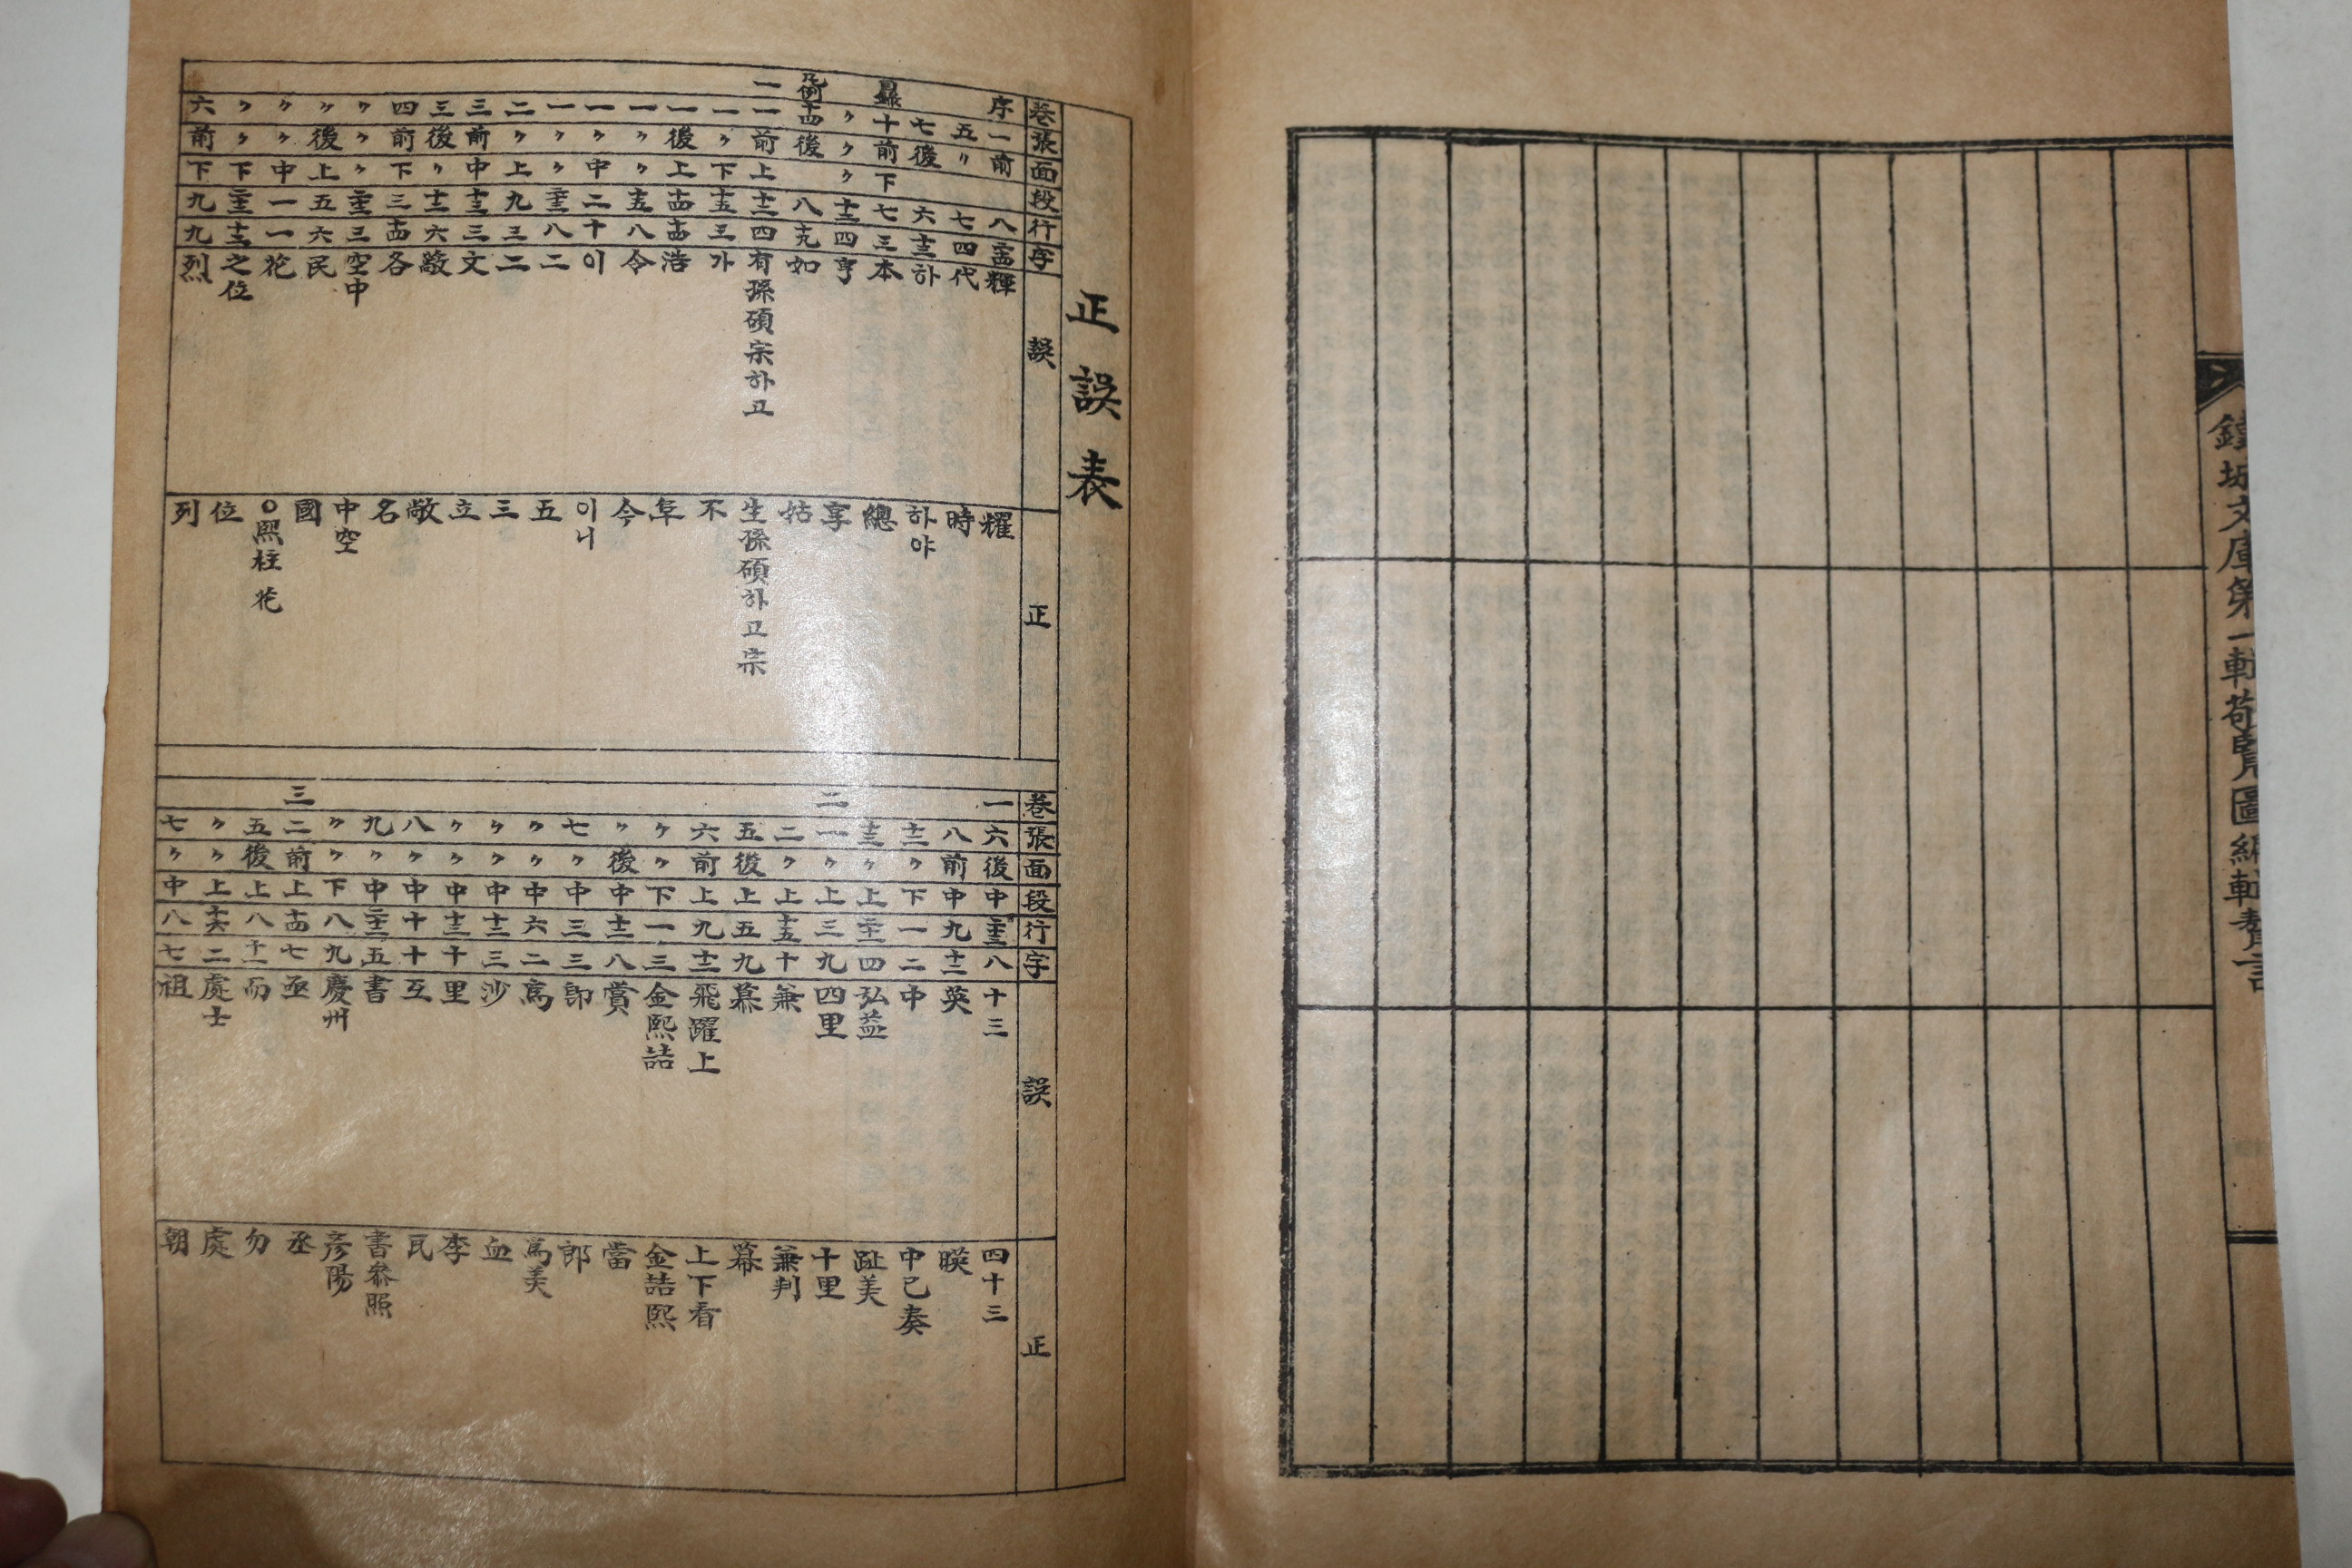 鐵城文庫第一輯苟覽圖編輯
正誤表
卷張面段行字 誤 正
序 一 前 八 二十四 輝 耀
五 〃 七 四 代 時
七 後 六 十三 하 하야
目錄 十 前 下 七 三 本 總
〃 〃 〃 十三 四 亨 享
凡例 十四 後 八 十九 如 姑
一 一 前 上 十三 四 有孫碩宗하고 生孫碩하고宗
一 〃 下 十五 三 가 不
一 後 上 十四 十四 浩 阜
一 〃 〃 十五 八 令 今
一 〃 中 二 十 이 이니
一 〃 〃 二十三 八 二 五
二 〃 上 九 三 二 三
三 前 中 十三 三 文 立
三 後 〃 十三 六 敬 敞
四 前 下 三 十四 各 名
〃 〃 〃 二十三 三 空中 中空
〃 後 上 五 六 民 國
〃 〃 中 一 一 花 ○熙柱 花
〃 〃 下 二十三 十三 之位 位
六 前 下 九 九 烈 列
卷張面段行字 誤 正
一 六 後 中 二十三 八 十三 四十三
八 前 中 九 十二 英 暎
十二 〃 下 一 二 中 中已奏
十三 〃 上 二十二 四 弘益 趾美
二 一 〃 上 三 九 四里 十里
二 〃 上 十五 十 兼 兼判
五 後 上 五 九 慕 幕
六 前 上 九 十三 飛躍上 上下看
〃 〃 下 一 三 金熙詰 金詰熙
〃 後 中 十二 八 賞 當
七 〃 中 三 三 郎 郎
〃 〃 中 六 二 爲 爲美
〃 〃 中 十二 三 沙 血
〃 〃 中 十三 十 里 李
八 〃 中 十 十 互 瓦
九 〃 中 二十二 五 書 書參照
〃 〃 下 八 九 慶州 彦陽
三 二 前 上 十四 七 丞 丞
五 後 上 八 十一 而 勿
〃 〃 上 十六 二 處士 處
七 〃 中 八 七 祖 朝